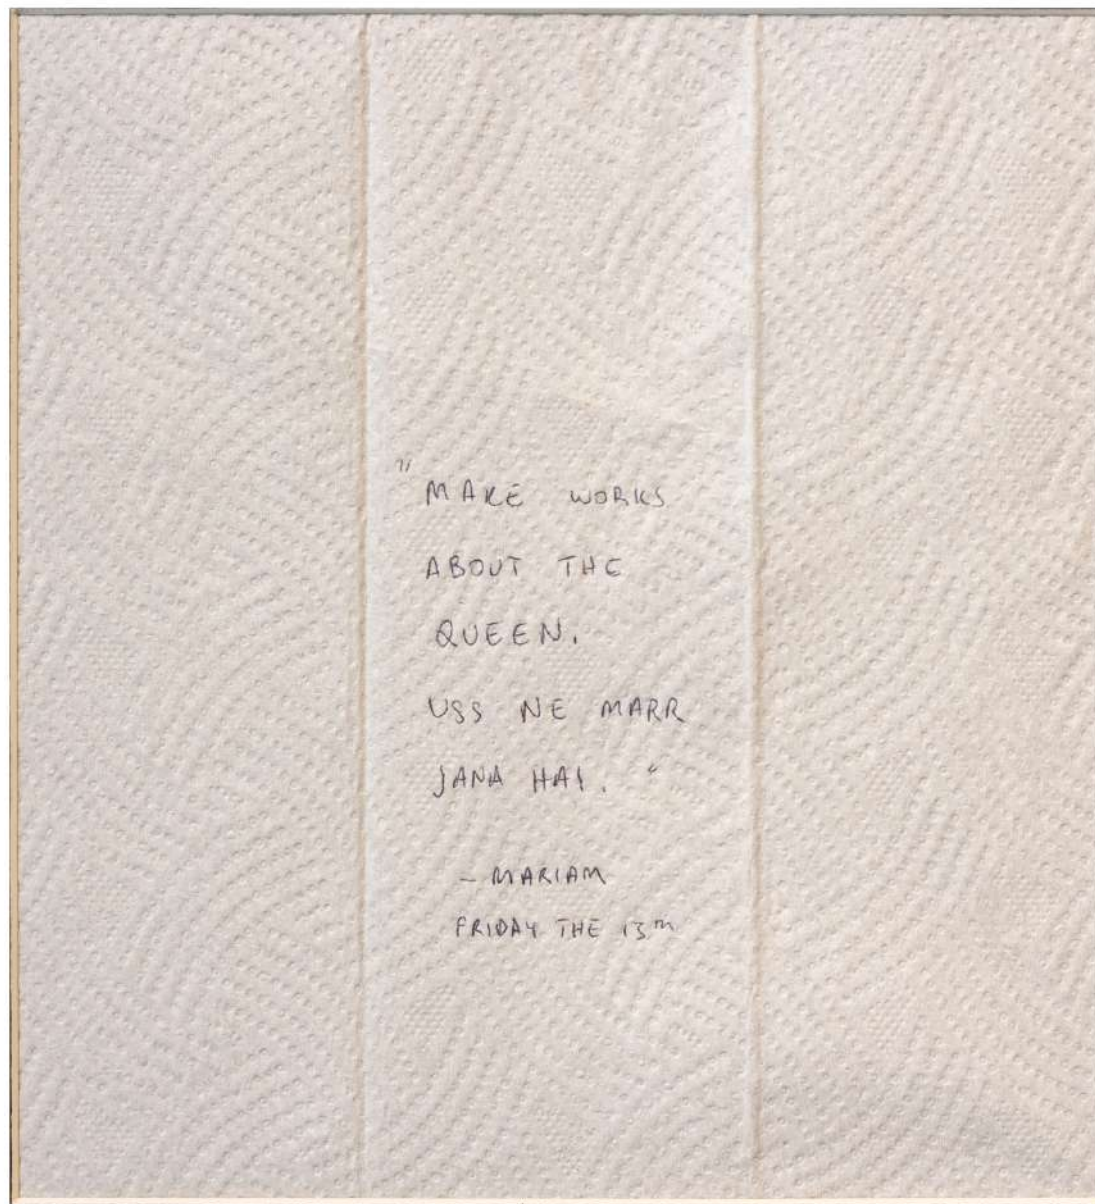 "MAKE WORKS
ABOUT THE
QUEEN.
USS NE MARR
JANA HAI."
- MARIAM
FRIDAY THE 13TH